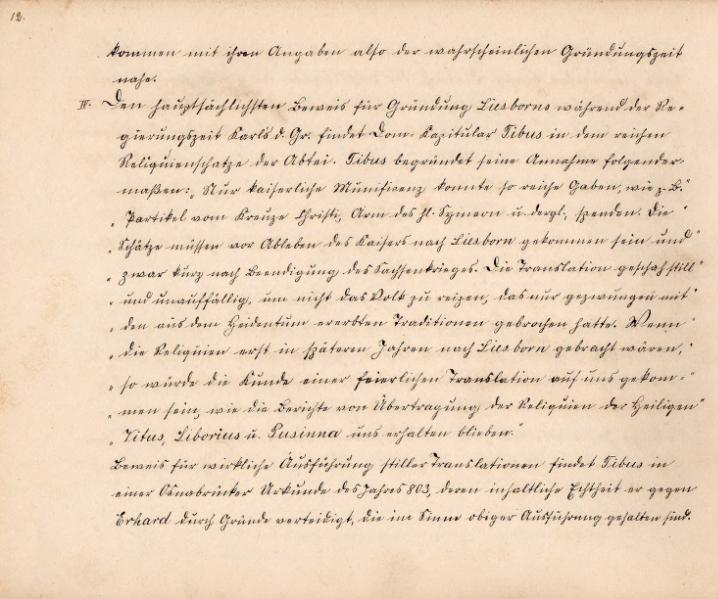 12.
kommen mit ihren Angaben also der wahrscheinlichen Gründungszeit
nahe.
IV. Den hauptsächlichsten Beweis für Gründung Liesborns während der Re-
gierungszeit Karls d. Gr. findet Dom-Kapitular Tibus in dem reichen
Reliquienschatze der Abtei. Tibus begründet seine Annahme folgender-
maßen: „Nur kaiserliche Munificenz konnte so reiche Gaben, wie z. B.“
„Partikel vom Kreuze Christi, Arm des hl. Symeon u. dergl., spenden. Die“
„Schätze müssen vor Ableben des Kaisers nach Liesborn gekommen sein und“
„zwar kurz nach Beendigung des Sachsenkrieges. Die Translation geschah still“
„und unauffällig, um nicht das Volk zu reizen, das nur gezwungen mit“
„den aus dem Heidentum ererbten Traditionen gebrochen hatte. Wenn“
„die Reliquien erst in späteren Jahren nach Liesborn gebracht wären,“
„so würde die Kunde einer feierlichen Translation auf uns gekom-“
„men sein, wie die Berichte von Übertragung der Reliquien der Heiligen“
„Vitus, Liborius u. Pusinna uns erhalten blieben.“
Beweis für wirkliche Ausführung stiller Translationen findet Tibus in
einer Osnabrücker Urkunde des Jahres 803, deren inhaltliche Echtheit er gegen
Erhard durch Gründe verteidigt, die im Sinne obiger Ausführung gehalten sind.